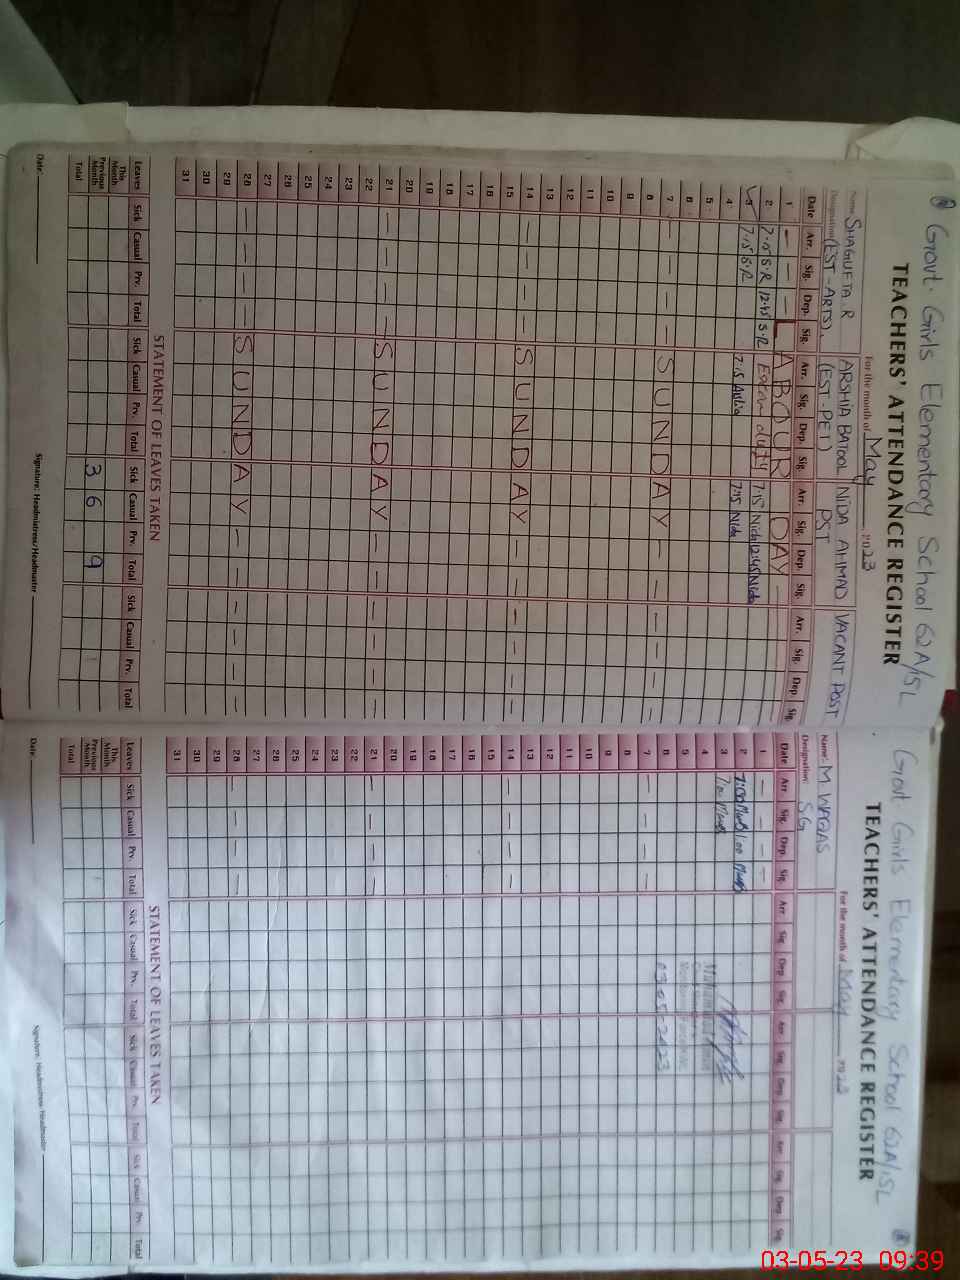 Govt. Girls Elementary School 62A/15L
TEACHERS' ATTENDANCE REGISTER
For the month of May 2023
Name SHAGUFTA R ARSHIA BATOOL NIDA AHMAD VACANT POST
Designation (EST-ARTS) (EST-PET) PST
Date Arr. Sig. Dep. Sig. Arr. Sig. Dep. Sig. Arr. Sig. Dep. Sig. Arr. Sig. Dep. Sig.
1 — — — LABOUR DAY —
2 7:15 S.R 12:45 S.R Exam duty 7:15 Nida 12:45 Nida
3 7:15 S.R 7:15 7:15 Nida
4
5
6
7 — — SUNDAY — — — — —
8
9
10
11
12
13
14 — — — — SUNDAY — — — — — —
15
16
17
18
19
20
21 — — — — SUNDAY — — — — — —
22
23
24
25
26
27
28 — — — — SUNDAY — — — — — —
29
30
31
STATEMENT OF LEAVES TAKEN
Leaves Sick Casual Prv. Total Sick Casual Prv. Total Sick Casual Prv. Total Sick Casual Prv. Total
This Month
Previous Month 3 6 9
Total
Date: Signature: Headmistress/Headmaster
Govt Girls Elementary School 62A/15L
TEACHERS' ATTENDANCE REGISTER
For the month of May 2023
Name: M WAQAS
Designation: SG
Date Arr. Sig. Dep. Sig. Arr. Sig. Dep. Sig. Arr. Sig. Dep. Sig. Arr. Sig. Dep. Sig.
1 — — — —
2 7:00 1:00
3 7:00
4
5
6
03-05-2023
7 — — — —
8
9
10
11
12
13
14 — — — —
15
16
17
18
19
20
21 — — — —
22
23
24
25
26
27
28 — — — —
29
30
31
STATEMENT OF LEAVES TAKEN
Leaves Sick Casual Prv. Total Sick Casual Prv. Total Sick Casual Prv. Total Sick Casual Prv. Total
This Month
Previous Month
Total
Date: Signature: Headmistress/Headmaster
03-05-23 09:39